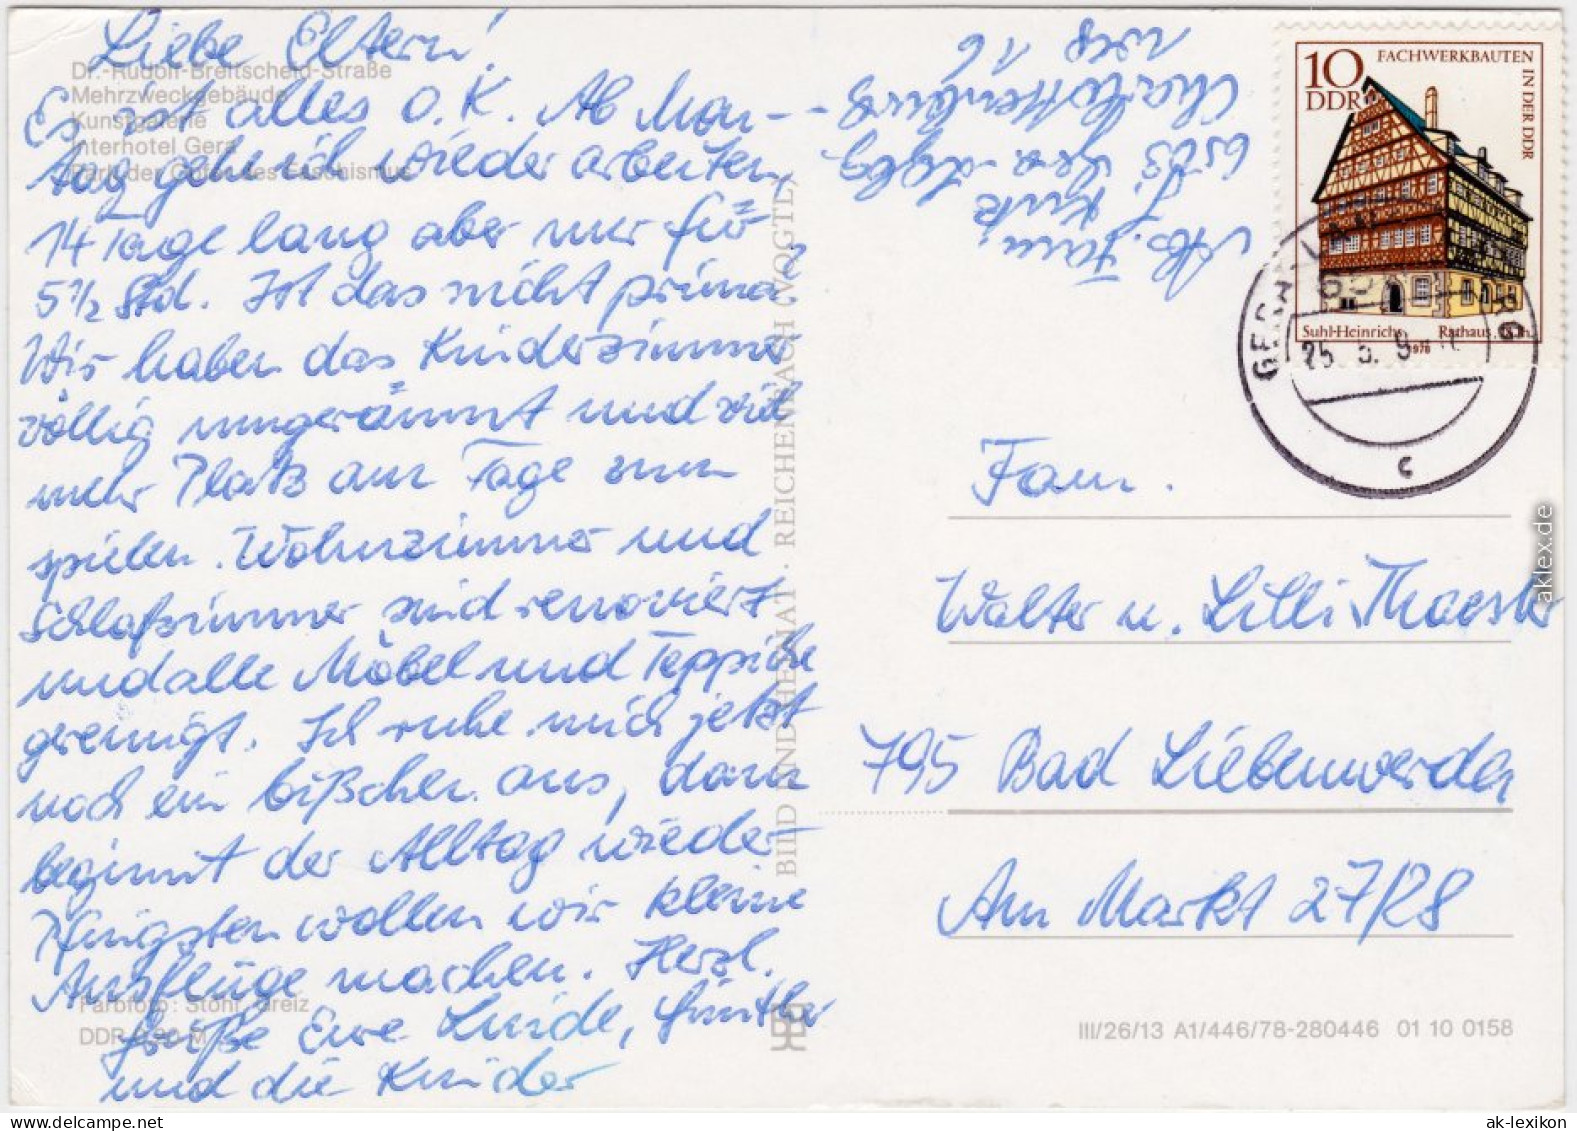 Liebe Eltern!
Es ist alles O.K. Ab Mon-
tag geh ich wieder arbeiten,
14 Tage lang aber nur für
5 1/2 Std. Ist das nicht prima?
Wir haben das Kinderzimmer
völlig umgeräumt und viel
mehr Platz am Tage zum
spielen. Wohnzimmer und
Schlafzimmer sind renoviert
und alle Möbel und Teppiche
gereinigt. Ich ruhe mich jetzt
noch ein bißchen aus, dann
beginnt der Alltag wieder.
Pfingsten wollen wir kleine
Ausflüge machen. Herzl.
Grüße Eure Linde, Günther
und die Kinder
Dr.-Rudolf-Breitscheid-Straße
Mehrzweckgebäude
Kunstgalerie
Interhotel Gera
Park der Opfer des Faschismus
Farbfoto: Stöhr, Greiz
DDR 0,20 M
BILD UND HEIMAT · REICHENBACH (VOGTL)
Abs. Fam.
G. Kurtz
6503 Gera-Lgbg.
Charlottenburg-
weg 16
10
DDR
FACHWERKBAUTEN
IN DER DDR
Suhl-Heinrichs Rathaus
1978
GERA-LANGENBERG
25. 5.
c
Fam.
Walter u. Lilli Maester
795 Bad Liebenwerda
Am Markt 27/28
III/26/13 A1/446/78-280446 01 10 0158
aklex.de
ak-lexikon